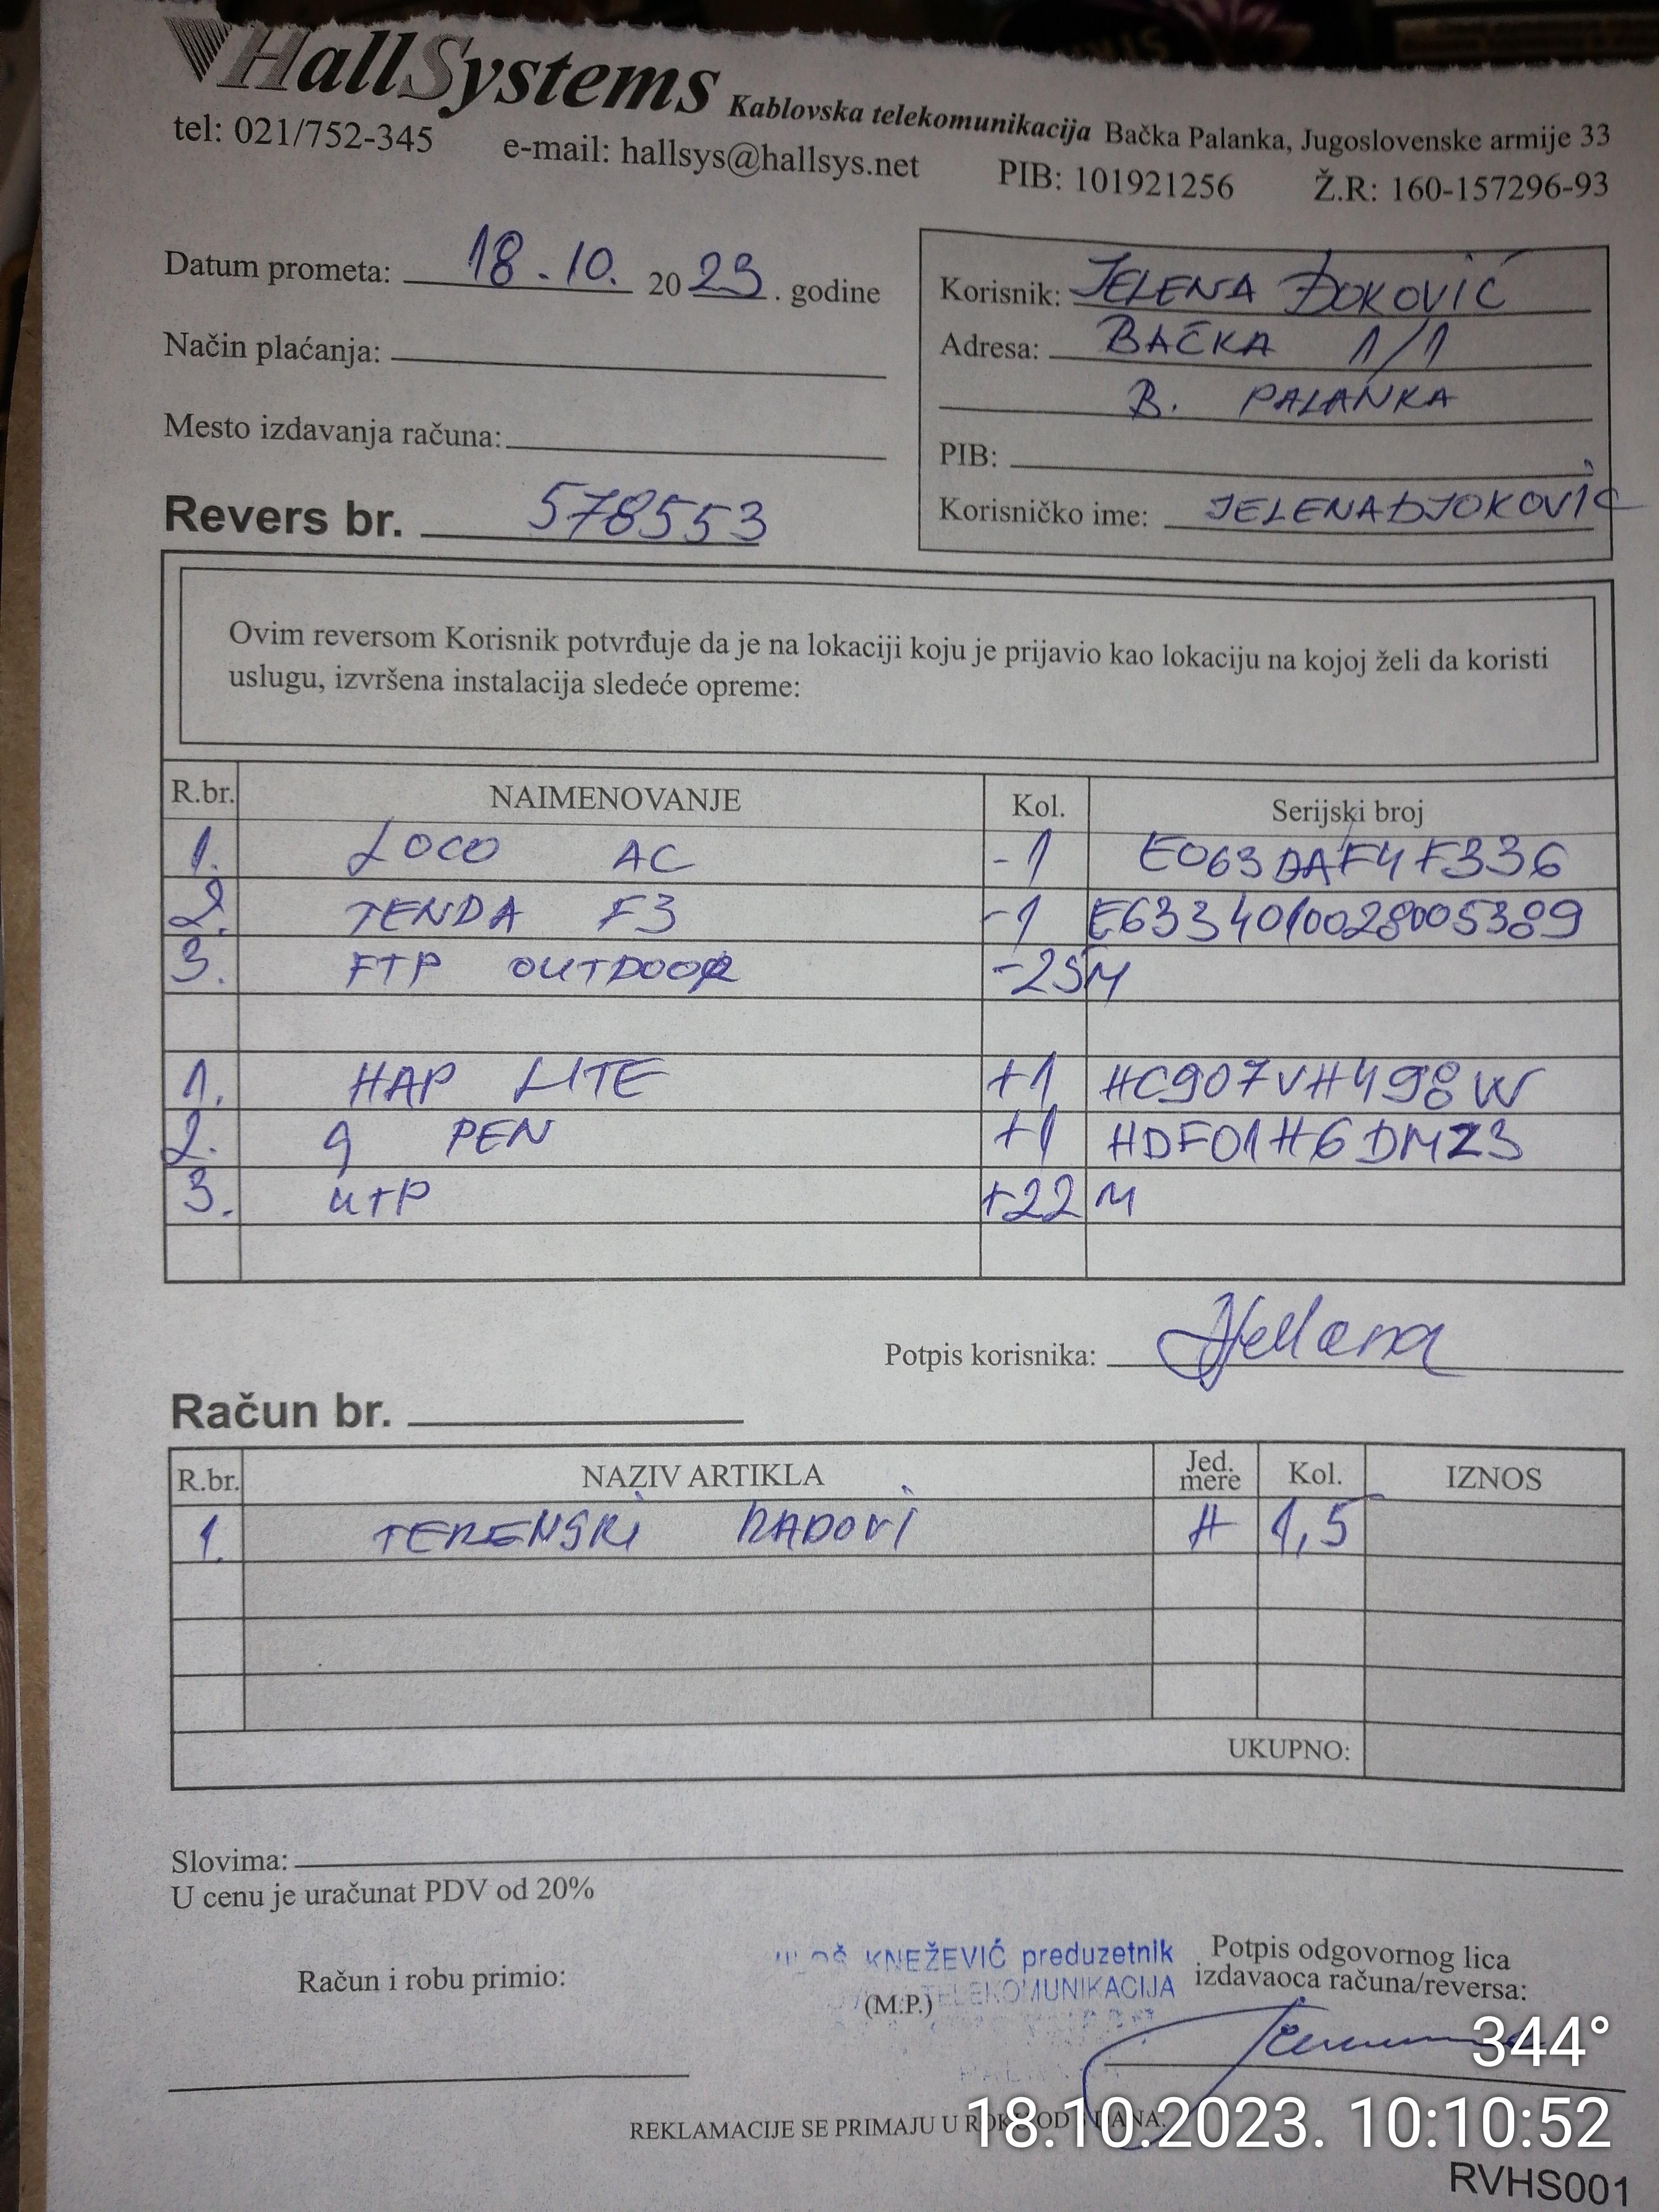 HallSystems Kablovska telekomunikacija Bačka Palanka, Jugoslovenske armije 33
tel: 021/752-345 e-mail: hallsys@hallsys.net PIB: 101921256 Ž.R: 160-157296-93
Datum prometa: 18.10. 2023. godine
Način plaćanja:
Mesto izdavanja računa:
Revers br. 578553
Korisnik: JELENA ĐOKOVIĆ
Adresa: BAČKA 1/1
B. PALANKA
PIB:
Korisničko ime: JELENADJOKOVIC
Ovim reversom Korisnik potvrđuje da je na lokaciji koju je prijavio kao lokaciju na kojoj želi da koristi
uslugu, izvršena instalacija sledeće opreme:
R.br. NAIMENOVANJE Kol. Serijski broj
1. LOCO AC -1 E063DAF4F336
2. TENDA F3 -1 E6334010028005389
3. FTP OUTDOOR -25M
1. HAP LITE +1 HC907VH498W
2. 9 PEN +1 HDF01H6DMZ3
3. UTP +22 M
Potpis korisnika: Jelena
Račun br.
R.br. NAZIV ARTIKLA Jed. mere Kol. IZNOS
1. TERENSKI RADOVI H 1,5
UKUPNO:
Slovima:
U cenu je uračunat PDV od 20%
Račun i robu primio:
KNEŽEVIĆ preduzetnik
TELEKOMUNIKACIJA
(M.P.)
Potpis odgovornog lica
izdavaoca računa/reversa:
344°
REKLAMACIJE SE PRIMAJU U ROKU OD DANA.
18.10.2023. 10:10:52
RVHS001